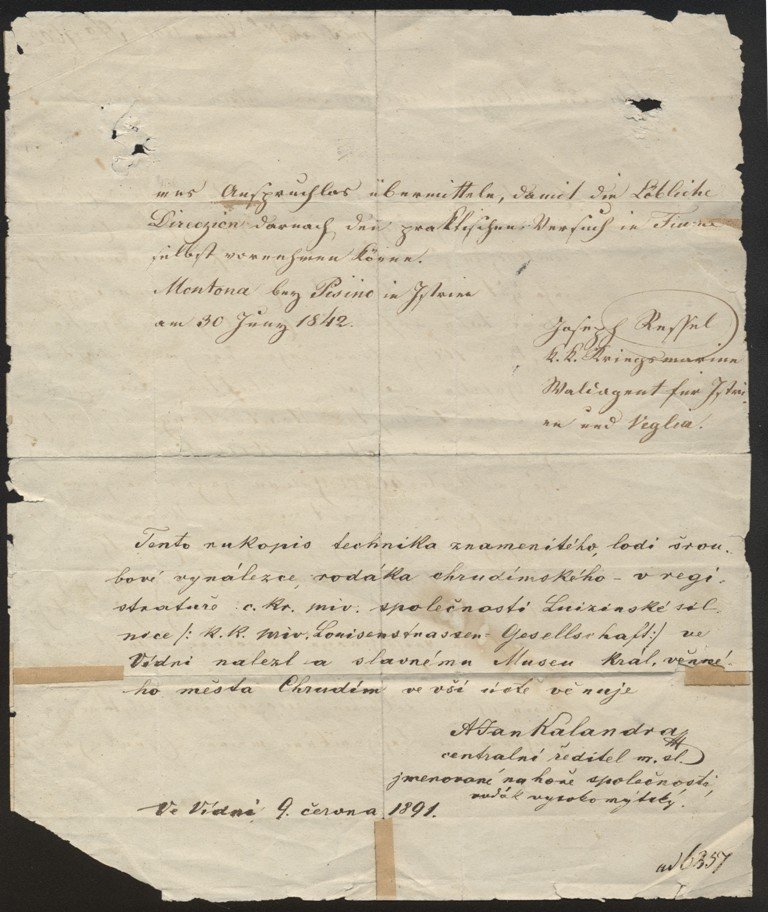 mus Anspruchlos übermitteln, damit die Löbliche
Direczion darnach den praktischen Versuch in Fiume
selbst vornehmen könne.
Montona bey Pisino in Istrien
am 30 Juny 1842.
Joseph Ressel
k. k. Kriegsmarine
Waldagent für Istri-
en und Veglia.
Tento rukopis technika znamenitého, lodi šrou-
boví vynálezce, rodáka chrudímského – v regi-
stratuře c. kr. priv. společnosti Luizinské sil-
nice /: k. k. priv. Louisenstrassen- Gesellschaft :/ ve
Vídni nalezl a slavnému Museu král. věnné-
ho města Chrudím ve vší úctě věnuje
Jan Kalandra
centralní ředitel m. sl.
jmenované nahoře společnosti,
rodák vysokomýtský.
Ve Vídni, 9. června 1891.
ad 6357